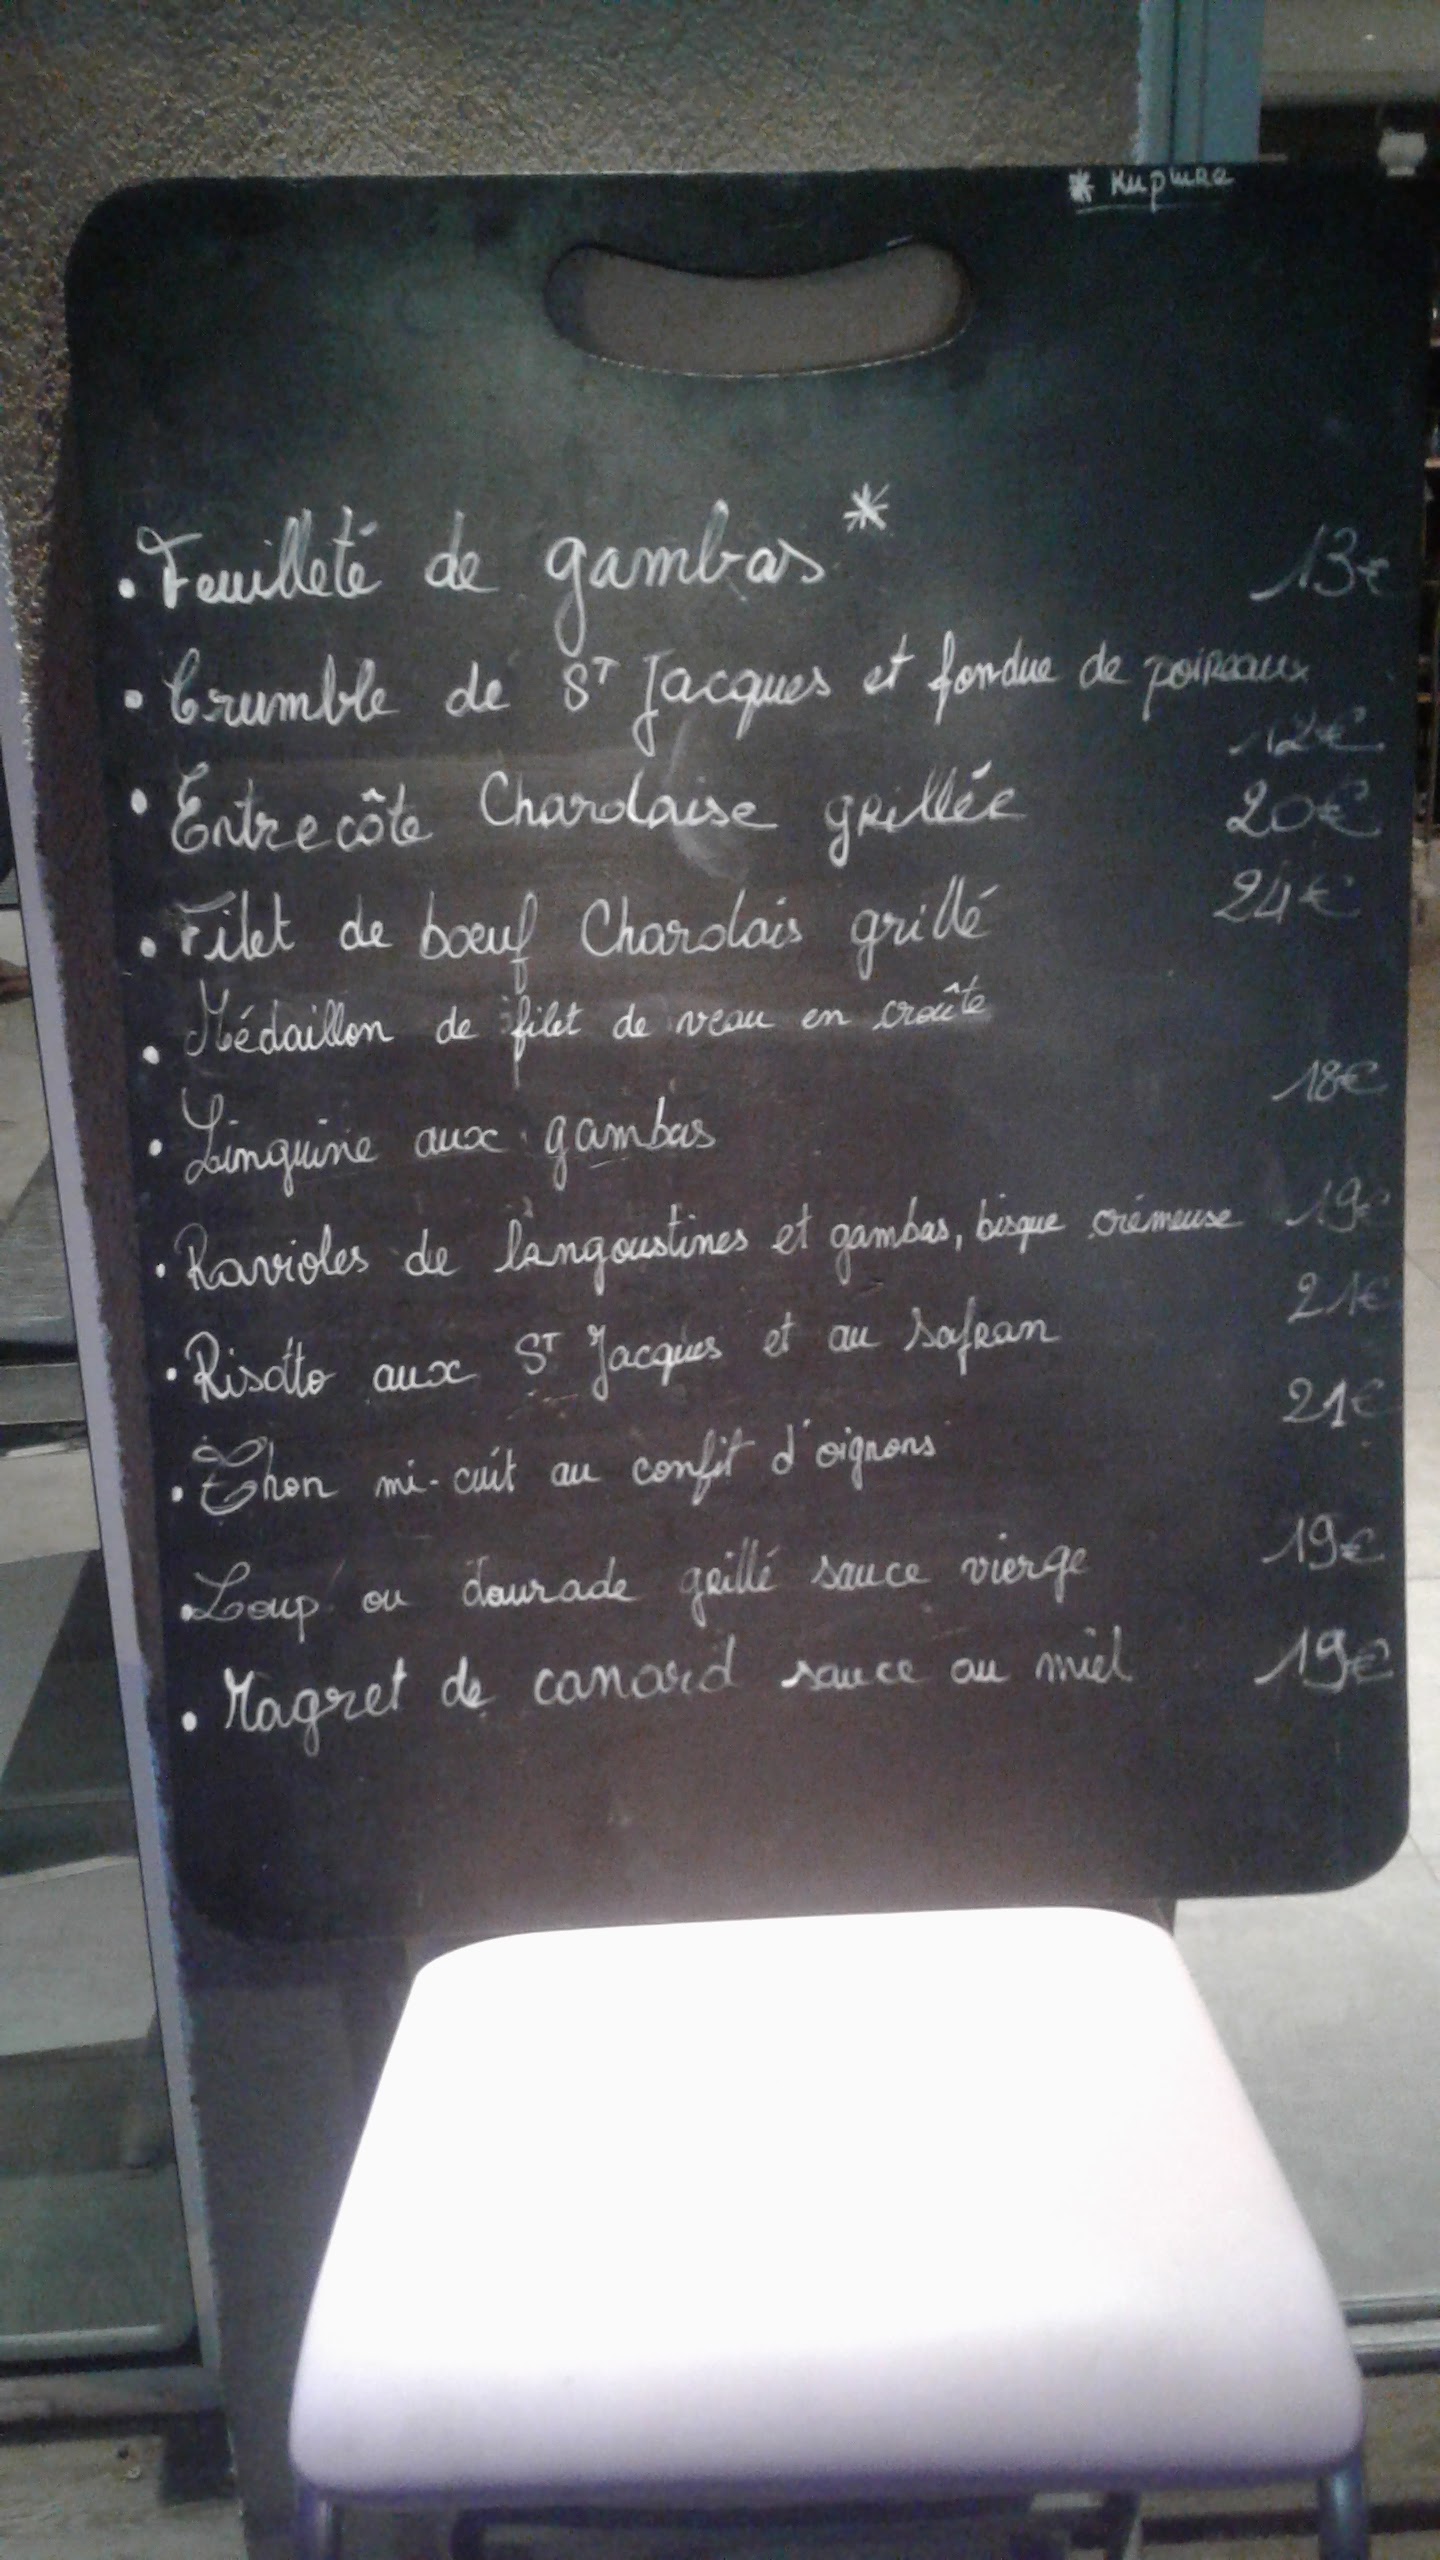 * Rupture
• Feuilleté de gambas * 13€
• Crumble de ST Jacques et fondue de poireaux
12€
• Entrecôte Charolaise grillée 20€
• Filet de boeuf Charolais grillé 24€
• Médaillon de filet de veau en croûte
18€
• Linguine aux gambas
• Ravioles de langoustines et gambas, bisque crémeuse 19€
21€
• Risotto aux ST Jacques et au safran
21€
• Thon mi-cuit au confit d'oignons
19€
• Loup ou dourade grillé sauce vierge
• Magret de canard sauce au miel 19€